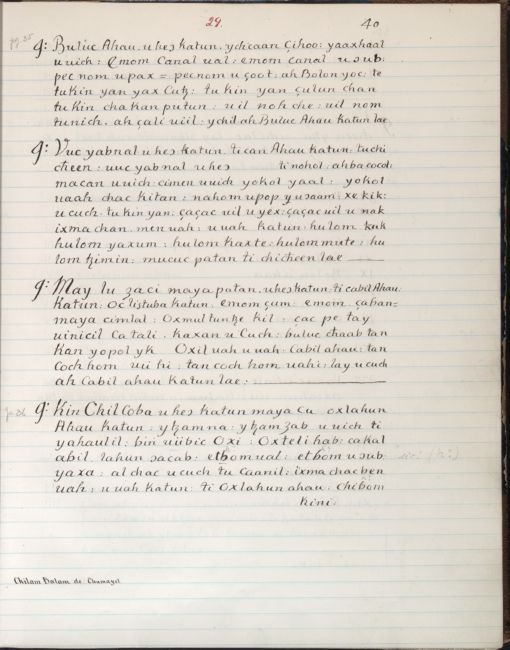 29.
40
pg. 35
q: Buluc Ahau. u heɔ katun. ydzcaan Çihoo: yaaxhaal
u uich: Emom Canal ual: emom canal u sub:
pec nom u pax = pecnom u çoot: ah Bolon yoc: te
tu kin yan yax Cutz: tu kin yan çulun chan
tu Kin chakan putun: uil noh che: uil nom
tunich, ah çali uil: ychil ah Buluc Ahau Katun lae
q: Vuc yabnal u heɔ katun. ti can Ahau katun: tuchi
cheen: uuc yab nal u heɔ ti nohol: ahbacocol:
macan u uich: cimen u uich yokol yaal: yokol
uaah chac kitan: nahom u pop yuɔaam: xe kik:
u cuch: tu kin yan: çaçac uil u yex: çaçac uil u nak
ixma chan. men uah: u uah katun: hulom kuk
hulom yaxum: hulom kaxte: hulom mute: hu
lom tzimin: mucuc patan ti chicheen lae
q: May lu zaci maya patan. u heɔ katun. ti cabil Ahau
Katun: Oc liɔtuba katun: emom çum: emom çaban=
maya cimlal: Oxmultuntze kil: çac pe tay
uinicil Ca tali. kaxan u Cuch: buluc chaab tan
Kan yopol yk Oxil uah u uah: Cabil ahau: tan
coch hom uii hi: tan coch hom uahi: lay u cuch
ah Cabil ahau Katun lae:
q: Kin Chil Coba u heɔ katun maya cu oxlahun
Ahau katun: ytzamna: ytzamzab u uich ti
yahaulil: bin uiibic Oxi: Oxteli hab: cakal
abil lahun ɔaçab: etbomual: etbom u sub:
yaxa: al chac u cuch tu Caanil: ixma chac ben
uah: u uah Katun: ti Oxlahun ahau: chibom
kini:
Chilam Balam de Chumayel